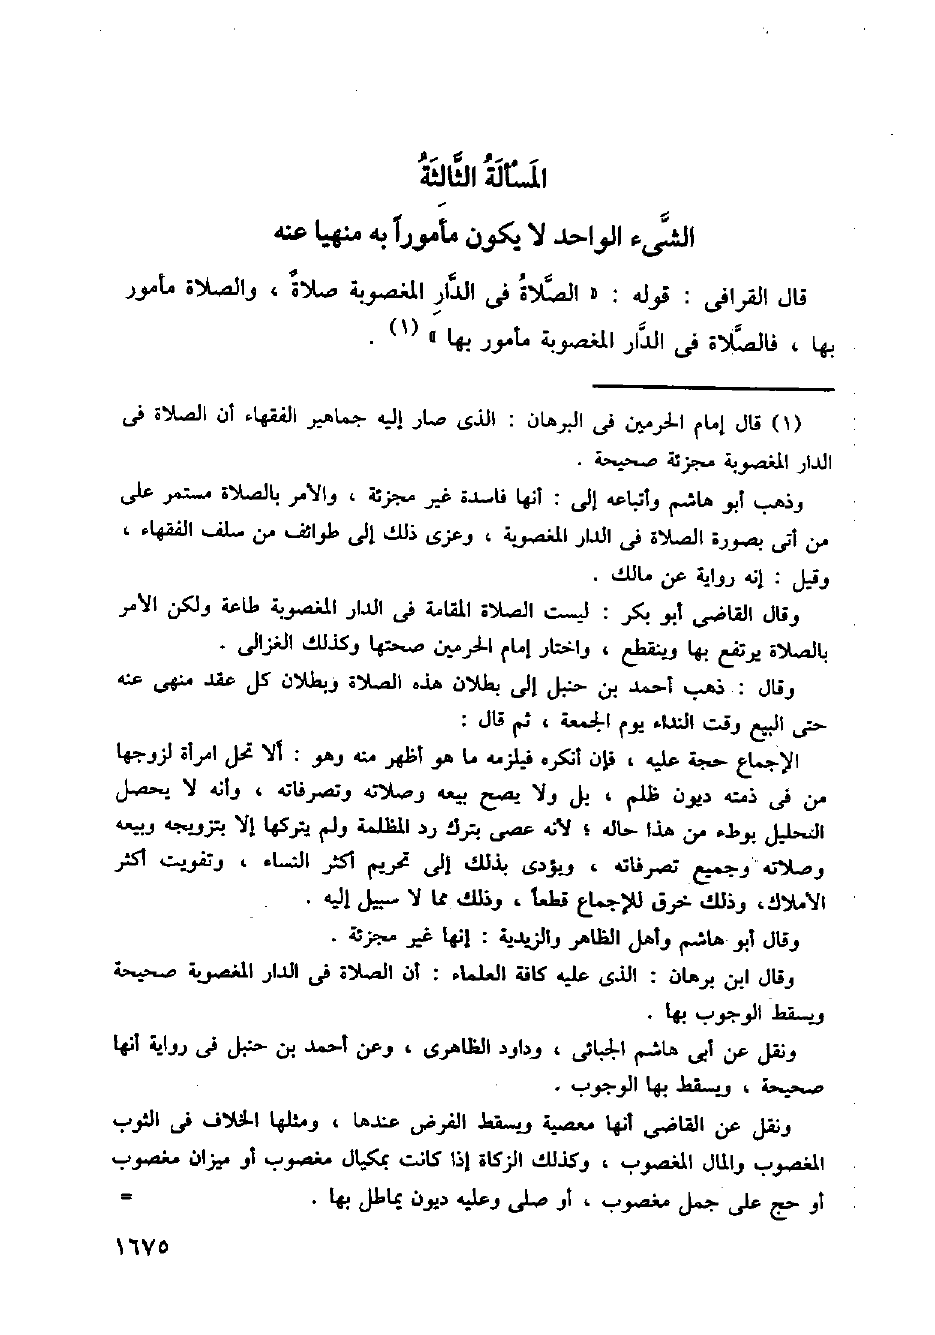 المَسْأَلَةُ الثَّالِثَةُ
الشَّىء الواحد لا يكون مأموراً به منهيا عنه
قال القرافى : قوله : « الصَّلاةُ فى الدَّارِ المغصوبة صلاةٌ ، والصلاة مأمور
بها ، فالصَّلاة فى الدَّار المغصوبة مأمور بها » (١) .
(١) قال إمام الحرمين فى البرهان : الذى صار إليه جماهير الفقهاء أن الصلاة فى
الدار المغصوبة مجزئة صحيحة .
وذهب أبو هاشم وأتباعه إلى : أنها فاسدة غير مجزئة ، والأمر بالصلاة مستمر على
من أتى بصورة الصلاة فى الدار المغصوبة ، وعزى ذلك إلى طوائف من سلف الفقهاء ،
وقيل : إنه رواية عن مالك .
وقال القاضى أبو بكر : ليست الصلاة المقامة فى الدار المغصوبة طاعة ولكن الأمر
بالصلاة يرتفع بها وينقطع ، واختار إمام الحرمين صحتها وكذلك الغزالى .
وقال : ذهب أحمد بن حنبل إلى بطلان هذه الصلاة وبطلان كل عقد منهى عنه
حتى البيع وقت النداء يوم الجمعة ، ثم قال :
الإجماع حجة عليه ، فإن أنكره فيلزمه ما هو أظهر منه وهو : ألا تحل امرأة لزوجها
من فى ذمته ديون ظلم ، بل ولا يصح بيعه وصلاته وتصرفاته ، وأنه لا يحصل
التحليل بوطء من هذا حاله ؛ لأنه عصى بترك رد المظلمة ولم يتركها إلا بتزويجه وبيعه
وصلاته وجميع تصرفاته ، ويؤدى بذلك إلى تحريم أكثر النساء ، وتفويت أكثر
الأملاك، وذلك خرق للإجماع قطعاً ، وذلك مما لا سبيل إليه .
وقال أبو هاشم وأهل الظاهر والزيدية : إنها غير مجزئة .
وقال ابن برهان : الذى عليه كافة العلماء : أن الصلاة فى الدار المغصوبة صحيحة
ويسقط الوجوب بها .
ونقل عن أبى هاشم الجبائى ، وداود الظاهرى ، وعن أحمد بن حنبل فى رواية أنها
صحيحة ، ويسقط بها الوجوب .
ونقل عن القاضى أنها معصية ويسقط الفرض عندها ، ومثلها الخلاف فى الثوب
المغصوب والمال المغصوب ، وكذلك الزكاة إذا كانت بمكيال مغصوب أو ميزان مغصوب
أو حج على جمل مغصوب ، أو صلى وعليه ديون يماطل بها . =
١٦٧٥